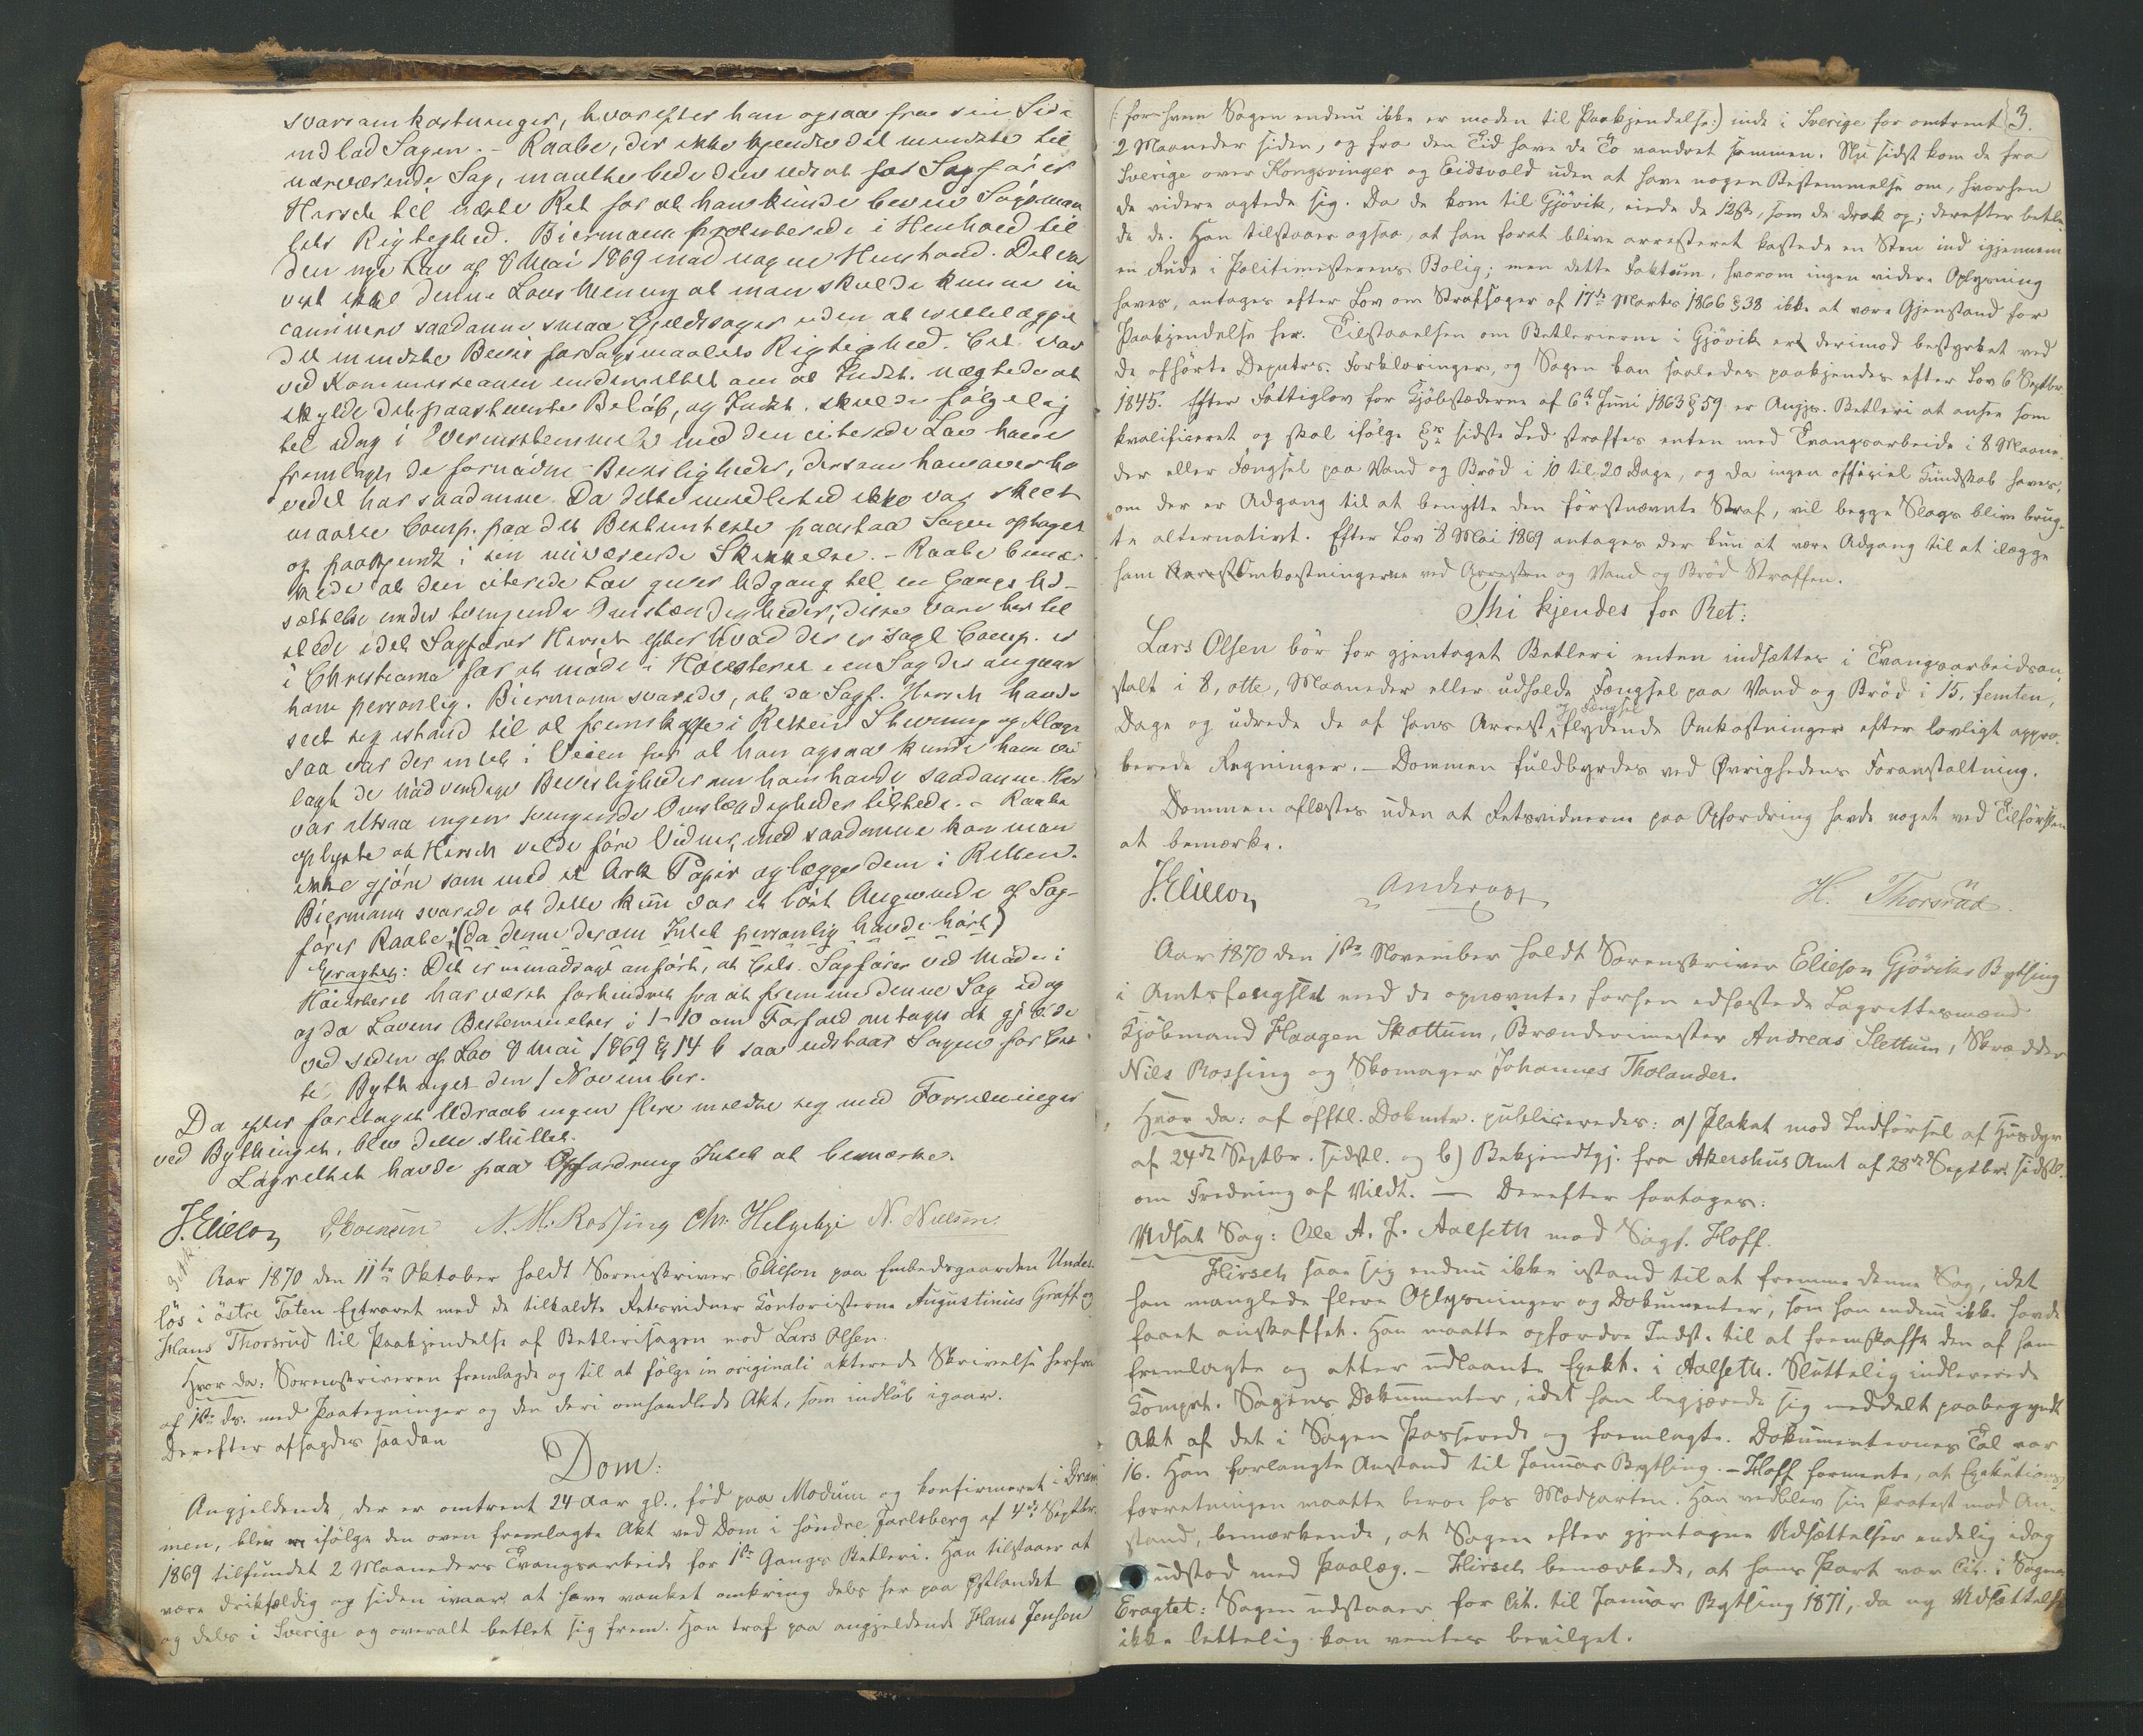 svarsomkostninger, hvorefter han ogsaa fra sin Side
indlod Sagen. - Raabe, der ikke kjendte det mindste til
nærværende Sag, maatte bede den udsat for Sagfører
Hirsch til næste Ret for at han kunde bevise Søgsmaa
lets Rigtighed. Biermann protesterede i Henhold til
den nye Lov af 8 Mai 1869 mod nogen Henstand. Det var
vist ikke denne Lovs Mening at man skulde kunne in
caminere saadanne smaa Gjældssager uden at vedlægge
det mindste Bevis for Søgsmaalets Rigtighed. Cit. var
ved Kommissionen underrettet om at Indst. nægtede at
skylde det paastævnte Beløb, og Indst. skulde følgelig
til idag i Overensstemmelse med den citerede Lov have
fremlagt de fornødne Bevisligheder, dersom han overho
vedet har saadanne. Da dette imidlertid ikke var skeet
maatte Comp. paa det Bestemteste paastaa Sagen optaget
og paakjendt i sin nuværende Skikkelse. - Raabe bemær
kede at den citerede Lov giver Adgang til en Gangs Ud-
sættelse under tvingende Omstændigheder; disse vare her til
stede idet Sagfører Hirsch efter hvad der er sagt Comp. er
i Christiania for at møde i Høiesteret i en Sag der angaar
ham personlig. Biermann svarede, at da Sagf. Hirsch havde
seet sig istand til at fremskaffe i Retten Stævning og Klage
saa var der intet i Veien for at han ogsaa kunde have ved
lagt de nødvendige Bevisligheder om han havde saadanne. Her
var altsaa ingen tvingende Omstændigheder tilstede. - Raabe
oplyste at Hirsch vilde føre Vidner, med saadanne kan man
ikke gjøre som med et Ark Papir og lægge dem i Retten.
Biermann svarede at dette kun var et løst Angivende af Sag-
fører Raabe, (da denne derom Intet personlig havde hørt)
Eragtet: Det er uimodsagt anført, at Cits. Sagfører ved Møde i
Høiesteret har været forhindret fra at fremme denne Sag idag
og da Lovens Bestemmelser i 1-10 om Forfald antages at gjælde
ved siden af Lov 8 Mai 1869 § 14 b saa udstaar Sagen for Cit.
til Bythinget den 1 November.
Da efter foretaget Udraab ingen flere meldte sig med Forretninger
ved Bythinget, blev dette sluttet.
Lagrettet havde paa Opfordring Intet at bemærke.
J. Elieson N. M. Rossing Chr. Helgehji N. Nielsen
Aar 1870 den 11te Oktober holdt Sorenskriver Elieson paa Embedsgaarden Under-
løs i østre Toten Extraret med de tilkaldte Retsvidner Contoristerne Augustinus Gräff og
Hans Thorsrud til Paakjendelse af Betlerisagen mod Lars Olsen.
Hvor da: Sorenskriveren fremlagde og til at følge in originali akterede Skrivelse herfra
af 1ste ds. med Paategninger og den deri omhandlede Akt, som indløb igaar.
Derefter afsagdes saadan
Dom:
Angjeldende, der er omtrent 24 Aar gl., fød paa Modum og konfirmeret i Dram
men, blev ifølge den oven fremlagte Akt ved Dom i søndre Jarlsberg af 4de Septbr.
1869 tilfundet 2 Maaneders Tvangsarbeide for 1ste Gangs Betleri. Han tilstaaer at
være drikfældig og siden ivaar at have vanket omkring dels her paa Østlandet
og dels i Sverige og overalt betlet sig frem. Han traf paa angjeldende Hans Jensen
3.
(: for hvem Sagen endnu ikke er moden til Paakjendelse:) inde i Sverige for omtrent
2 Maaneder siden, og fra den Tid have de To vandret sammen. Nu sidst kom de fra
Sverige over Kongsvinger og Eidsvold uden at have nogen Bestemmelse om, hvorhen
de videre agtede sig. Da de kom til Gjøvik, eiede de 12 sk, som de drak op; derefter betle
de de. Han tilstaaer ogsaa, at han forat blive arresteret kastede en Sten ind igjennem
en Rude i Politimesterens Bolig; men dette Faktum, hvorom ingen videre Oplysning
haves, antages efter Lov om Strafsager af 17de Marts 1866 § 38 ikke at være Gjenstand for
Paakjendelse her. Tilstaaelsen om Betlerierne i Gjøvik er derimod bestyrket ved
de afhørte Deputres. Forklaringer, og Sagen kan saaledes paakjendes efter Lov 6 Septbr.
1845. Efter Fattiglov for Kjøbstæderne af 6te Juni 1863 § 59 er Angjs. Betleri at ansee som
kvalificeret og skal ifølge §ens sidste Led straffes enten med Tvangsarbeide i 8 Maane-
der eller Fængsel paa Vand og Brød i 10 til 20 Dage, og da ingen officiel Kundskab haves,
om der er Adgang til at benytte den førstnævnte Straf, vil begge Slags blive brug-
te alternativt. Efter Lov 8 Mai 1869 antages der kun at være Adgang til at ilægge
ham Omkostningerne ved Arresten og Vand og Brød Straffen.
Thi kjendes for Ret:
Lars Olsen bør for gjentaget Betleri enten indsættes i Tvangsarbeidsan-
stalt i 8, otte, Maaneder eller udholde Fængsel paa Vand og Brød i 15, femten,
Dage og udrede de af hans Arrest og Fængsel flydende Omkostninger efter lovligt appro-
berede Regninger. - Dommen fuldbyrdes ved Øvrighedens Foranstaltning.
Dommen oplæstes uden at Retsvidnerne paa Opfordring havde noget ved Tilførslen
at bemærke.
J. Elieson H. Thorsrud.
Aar 1870 den 1ste November holdt Sorenskriver Elieson Gjøviks Bything
i Amtsfængslet med de opnævnte, forhen edfæstede Lagrettesmænd
Kjøbmand Haagen Skattum, Brænderimester Andreas Slettum, Skrædder
Niels Rossing og Skomager Johannes Tholander.
Hvor da: af offtl. Dokmtr. publiceredes: a) Plakat mod Indførsel af Husdyr
af 24de Septbr. sidstl. og b) Bekjendtgj. fra Akershus Amt af 28de Septbr. sidstl.
om Fredning af Vildt. — Derefter fortages:
Udsat Sag: Ole A. J. Aalseth mod Sagf. Hoff.
Hirsch saae sig endnu ikke istand til at fremme denne Sag, idet
han manglede flere Oplysninger og Dokumenter, som han endnu ikke havde
faaet anskaffet. Han maatte opfordre Indst. til at fremskaffe den af ham
fremlagte og atter udlaante Exekt. i Aalseth. Sluttelig indleverede
Compt. Sagens Dokumenter, idet han begjærede sig meddelt paabegyndt
Akt af det i Sagen Passerede og fremlagte. Dokumenternes Tal var
16. Han forlangte Anstand til Januar Bything. - Hoff formente, at Exekutions-
forretningen maatte beroe hos Modparten. Han vedblev sin Protest mod An-
stand, bemærkende, at Sagen efter gjentagne Udsættelser endelig idag
udstod med Paalæg. - Hirsch bemærkede, at hans Part var Cit. i Sagen.
Eragtet: Sagen udstaaer for Cit. til Januar Bything 1871, da ny Udsættelse
ikke lettelig kan ventes bevilget.